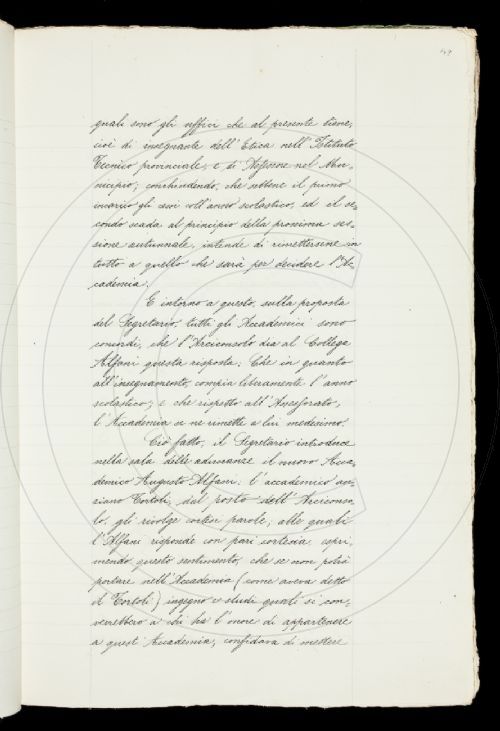 quali sono gli uffici che al presente tiene,
cioè di insegnante dell'Etica nell'Istituto
Tecnico provinciale, e di Assessore nel Mu-
nicipio; conchiudendo, che sebbene il primo
incarico gli cessi coll'anno scolastico, ed il se-
condo scada al principio della prossima ses-
sione autunnale, intende di rimettersene in
tutto a quello che sarà per decidere l'Ac-
cademia.
E intorno a questo, sulla proposta
del Segretario, tutti gli Accademici sono
concordi, che l'Arciconsolo dia al Collega
Alfani questa risposta: Che in quanto
all'insegnamento, compia liberamente l'anno
scolastico; e che rispetto all'Assessorato,
l'Accademia se ne rimette a lui medesimo.
Ciò fatto, il Segretario introduce
nella sala delle adunanze il nuovo Acca-
demico Augusto Alfani; l'accademico an-
ziano Tortoli, dal posto dell'Arciconso-
lo, gli rivolge cortesi parole; alle quali
l'Alfani risponde con pari cortesia, espri-
mendo questo sentimento, che se non potrà
portare nell'Accademia (come aveva detto
il Tortoli) ingegno e studi quali si con-
verrebbero a chi ha l'onore di appartenere
a questa Accademia, confidava di mettere